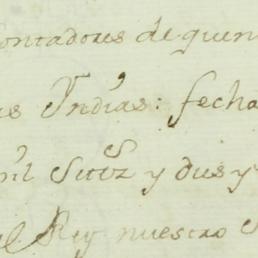 contadores de quen
as Yndias: fecha
mil Settz y dos y
el Rey nuestro S